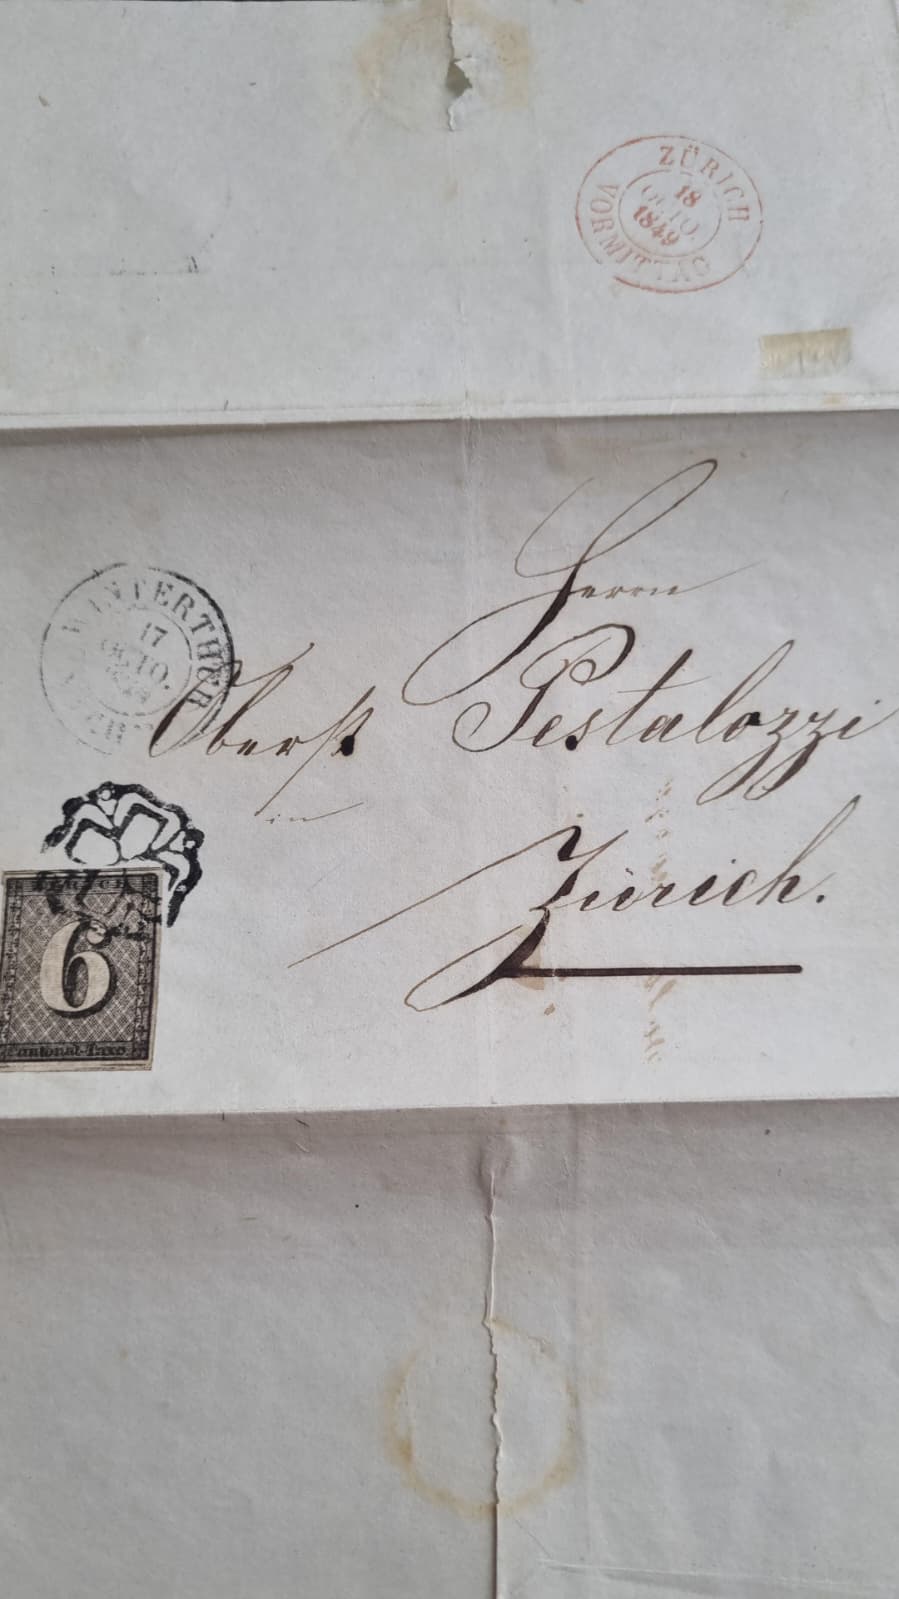 ZÜRICH
18
OCTO.
1849
VORMITTAG
WINTERTHUR
17
OCTO.
Herrn
Oberst Pestalozzi
in
Zürich.
6
Cantonal-Taxe